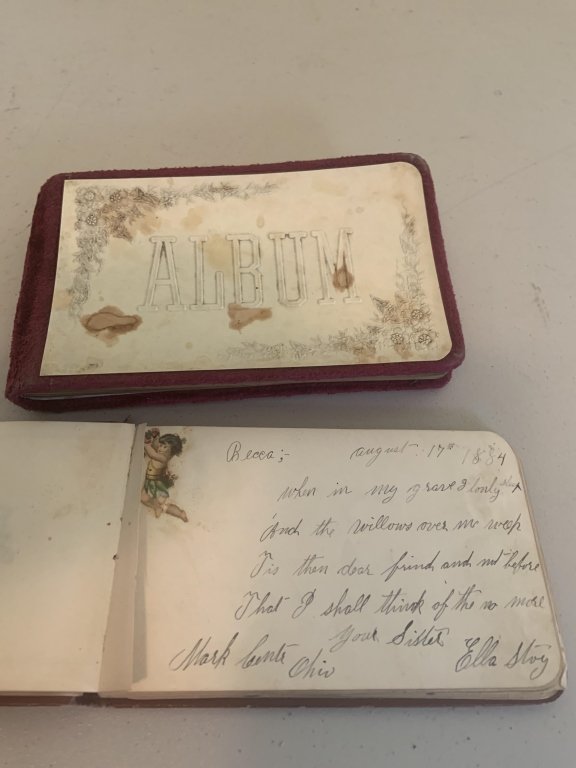 ALBUM
Becca;- august 17th 1884
when in my grave I lonly sleep
And the willows over me weep
Tis then dear frind and not before
That I shall think of the no more
Your Sister
Mark Cente Ohio Ella Stoy